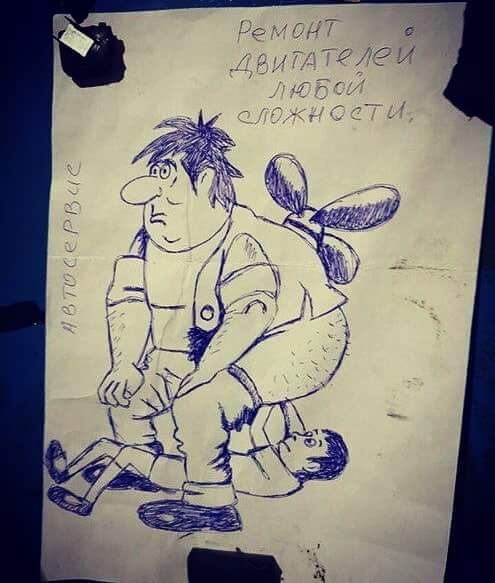 Ремонт
двигателей
любой
сложности.
Автосервис